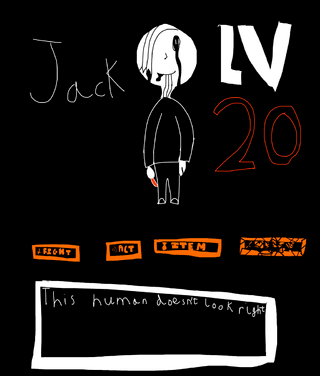 Jack
LV
20
FIGHT
ACT
ITEM
This human doesn't look right